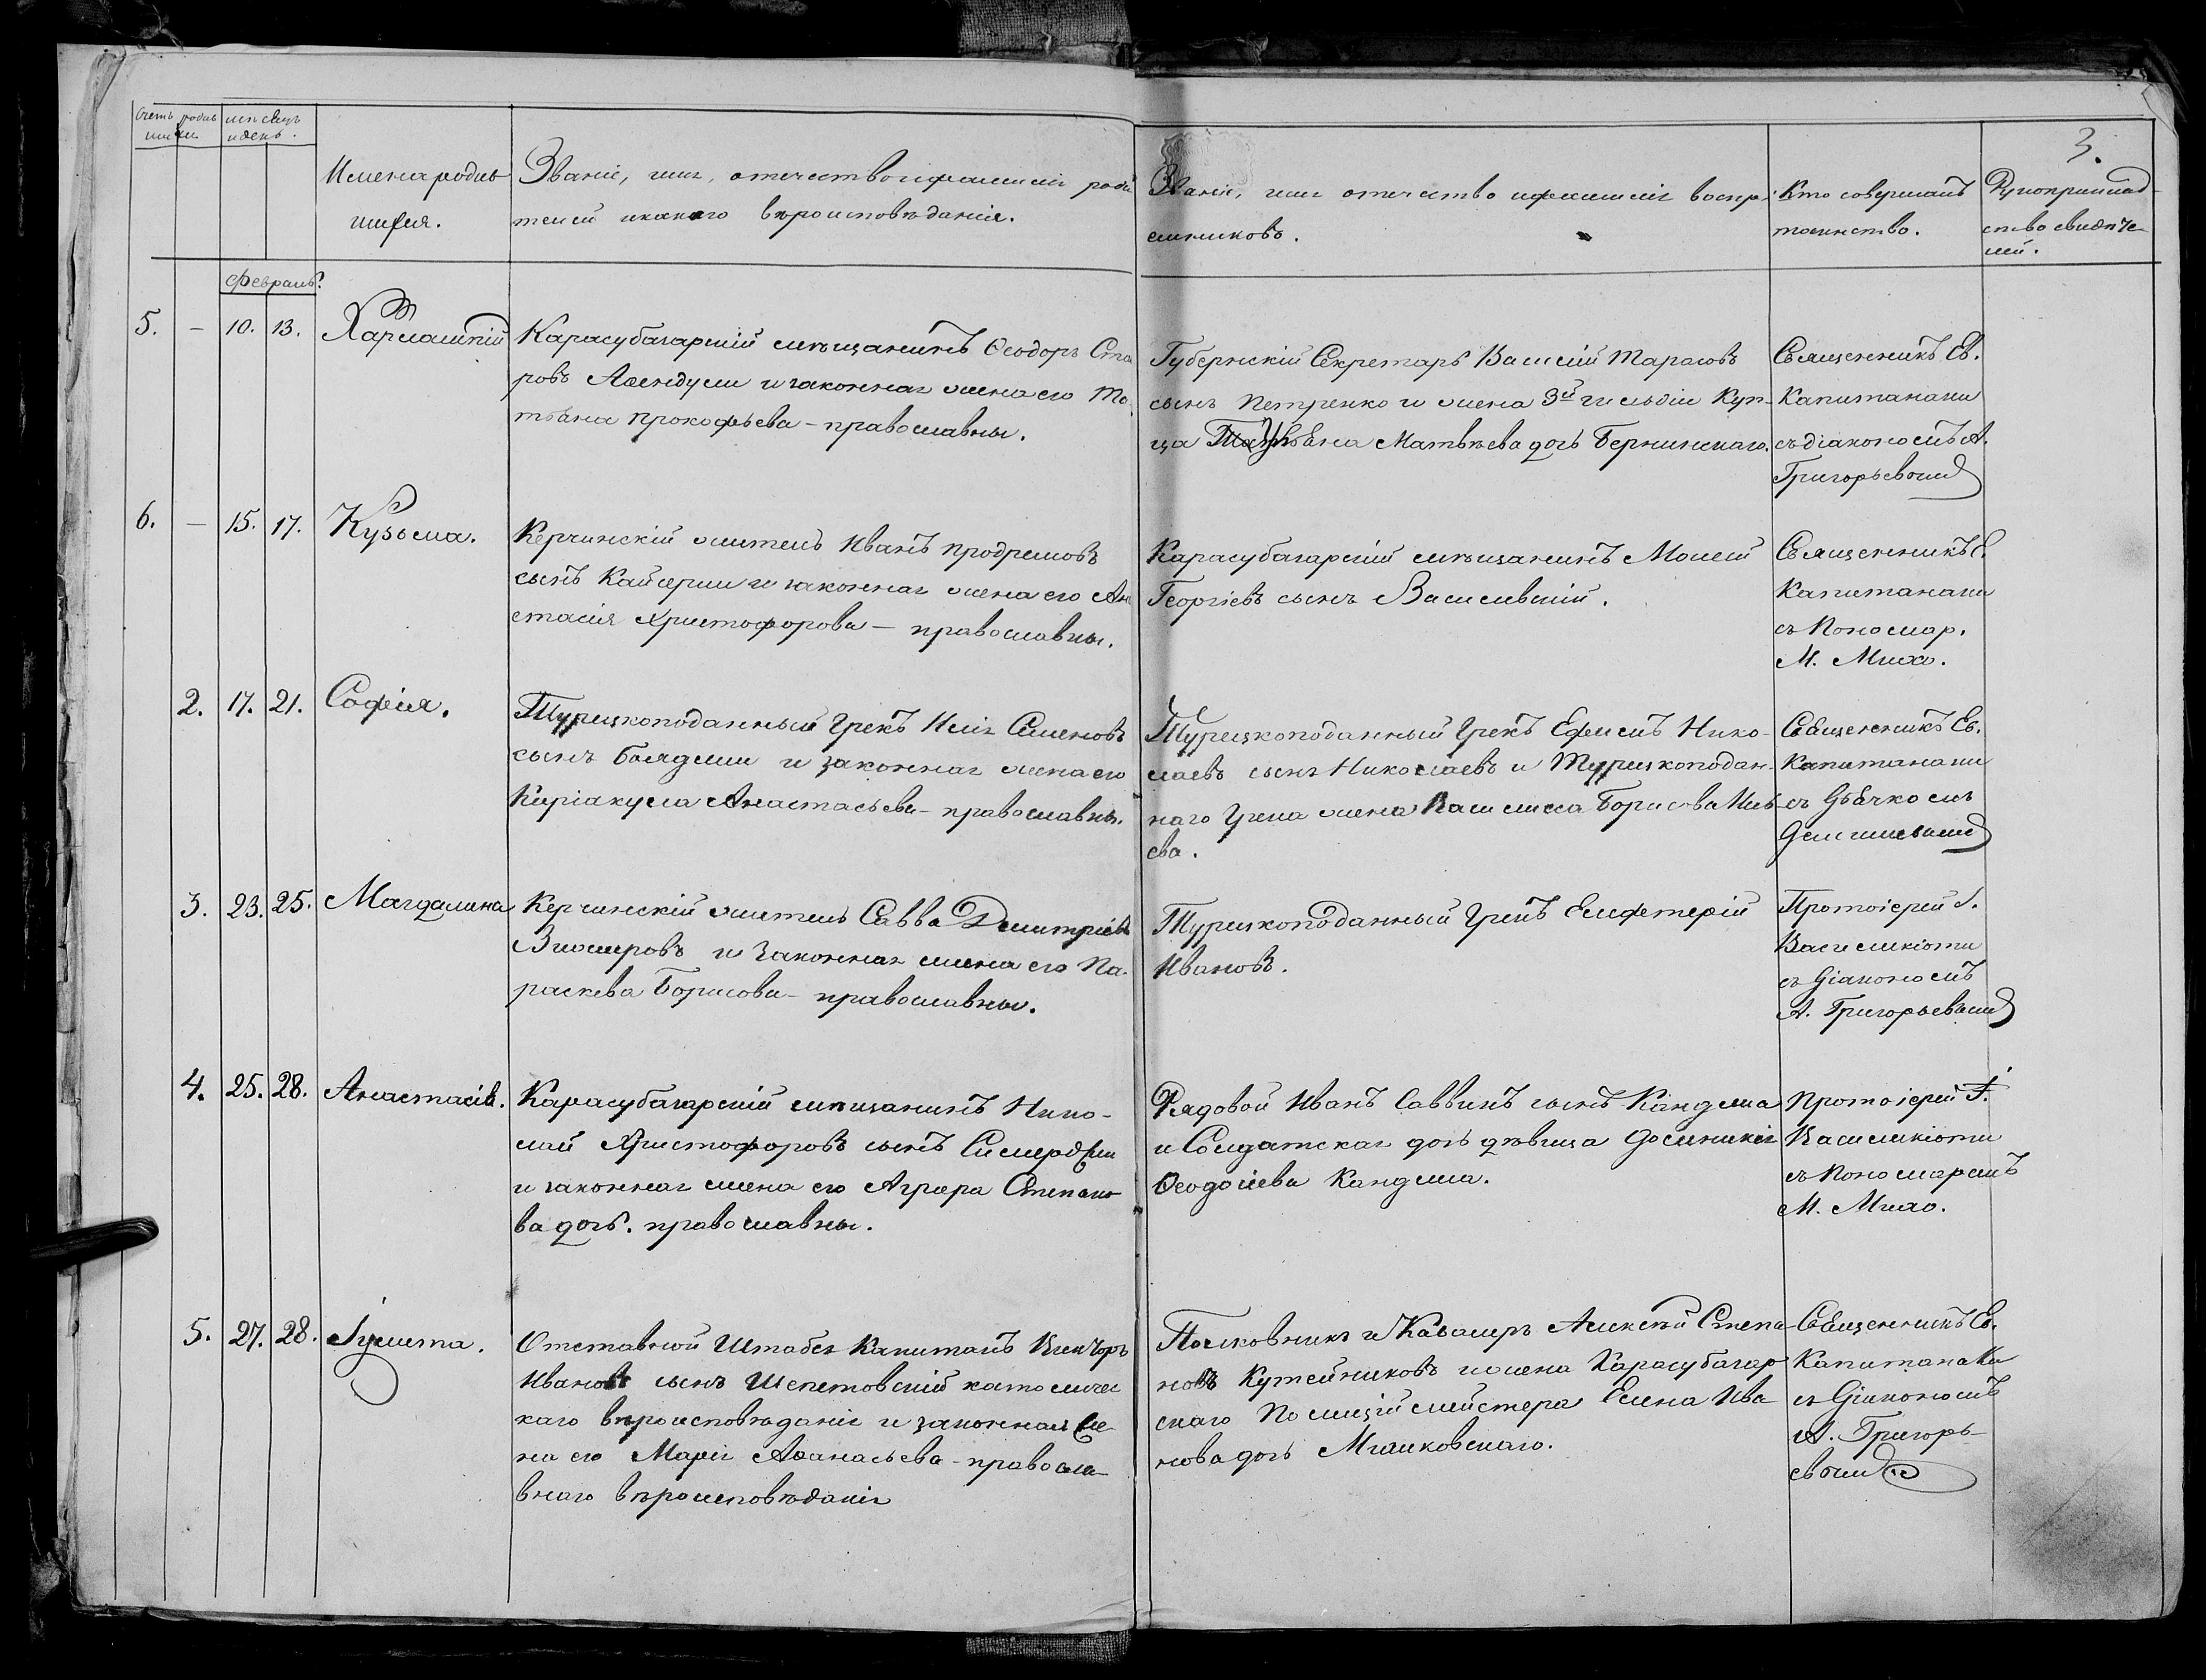 Счетъ родив
шихся
мѣсяцъ
и день.
Имена родив
шихся.
Званіе, имя, отечество и фамилія роди
телей и какого вѣроисповѣданія.
Званіе, имя отечество и фамилія воспрі
емниковъ.
Кто совершалъ
таинство.
Рукоприклад
ство свидѣте
лей.
3.
Февраль.
5. – 10. 13. Харлампій
Карасубазарскій мѣщанинъ Ѳеодоръ Ста
ровъ и законная жена его Та
тіана Прокофьева – православны.
Губернскій Секретарь Василій Тарасовъ
сынъ Петренко и жена 3й гильдіи Куп
ца Матвѣева дочь Бернинскаго.
Священникъ Ев.
Капитанаки
съ діакономъ А.
Григорьевымъ
6. – 15. 17. Кузьма.
Керчинскій житель Иванъ Продромовъ
сынъ и законная жена его Ана
стасія Христофорова – православны.
Карасубазарскій мѣщанинъ Моисей
Георгіевъ сынъ Василевскій.
Священникъ Е.
Капитанаки
съ Пономар.
М. Михо.
2. 17. 21. Софія.
Турецкоподанный Грекъ Илія Семеновъ
сынъ и законная жена его
Киріакула Анастасьева – православны.
Турецкоподанный Грекъ Ефимъ Нико
лаевъ сынъ Николаевъ и Турецкоподан
наго Грека жена Василиса Борисова Иль
ева.
Священникъ Ев.
Капитанаки
съ Дьячкомъ
3. 23. 25. Магдалина
Керчинскій житель Савва Дмитріевъ
и законная жена его Па
раскева Борисова – православны.
Турецкоподанный Грекъ Елефтерій
Ивановъ.
Протоіерей І.
Василикіоти
съ Діакономъ
А. Григорьевымъ
4. 25. 28. Анастасія.
Карасубазарскій мѣщанинъ Нико
лай Христофоровъ сынъ
и законная жена его Степано
ва дочь. православны.
Рядовой Иванъ Саввинъ сынъ Канджиа
и Солдатская дочь дѣвица Домникія
Ѳеодосіева Канджиа.
Протоіерей І.
Василикіоти
съ Пономаремъ
М. Михо.
5. 27. 28. Іулита.
Отставной Штабсъ Капитанъ Викторъ
Ивановъ сынъ Шепетовскій католичес
каго вѣроисповѣданія и законная же
на его Марія Аѳанасьева – правосла
внаго вѣроисповѣданія
Полковникъ и Кавалеръ Алексѣй Степа
новъ Кутейниковъ и жена Карасубазар
скаго Полиціймейстера Елена Ива
нова дочь
Священникъ Ев.
Капитанаки
съ Діакономъ
А. Григорь
евымъ